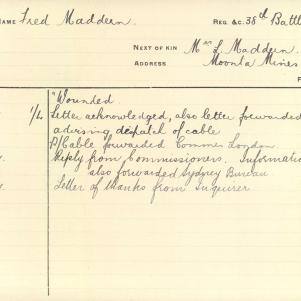 NAME Fred Maddern. REG. &C. 38th Battl
NEXT OF KIN Mrs L. Maddern.
ADDRESS Moonta Mines
"Wounded.
1/4 Letter acknowledged, also letter forwarded
advising despatch of cable
P/Cable forwarded Commrs London.
Reply from Commissioners. Informatio
also forwarded Sydney Bureau
Letter of thanks from Inquirer.